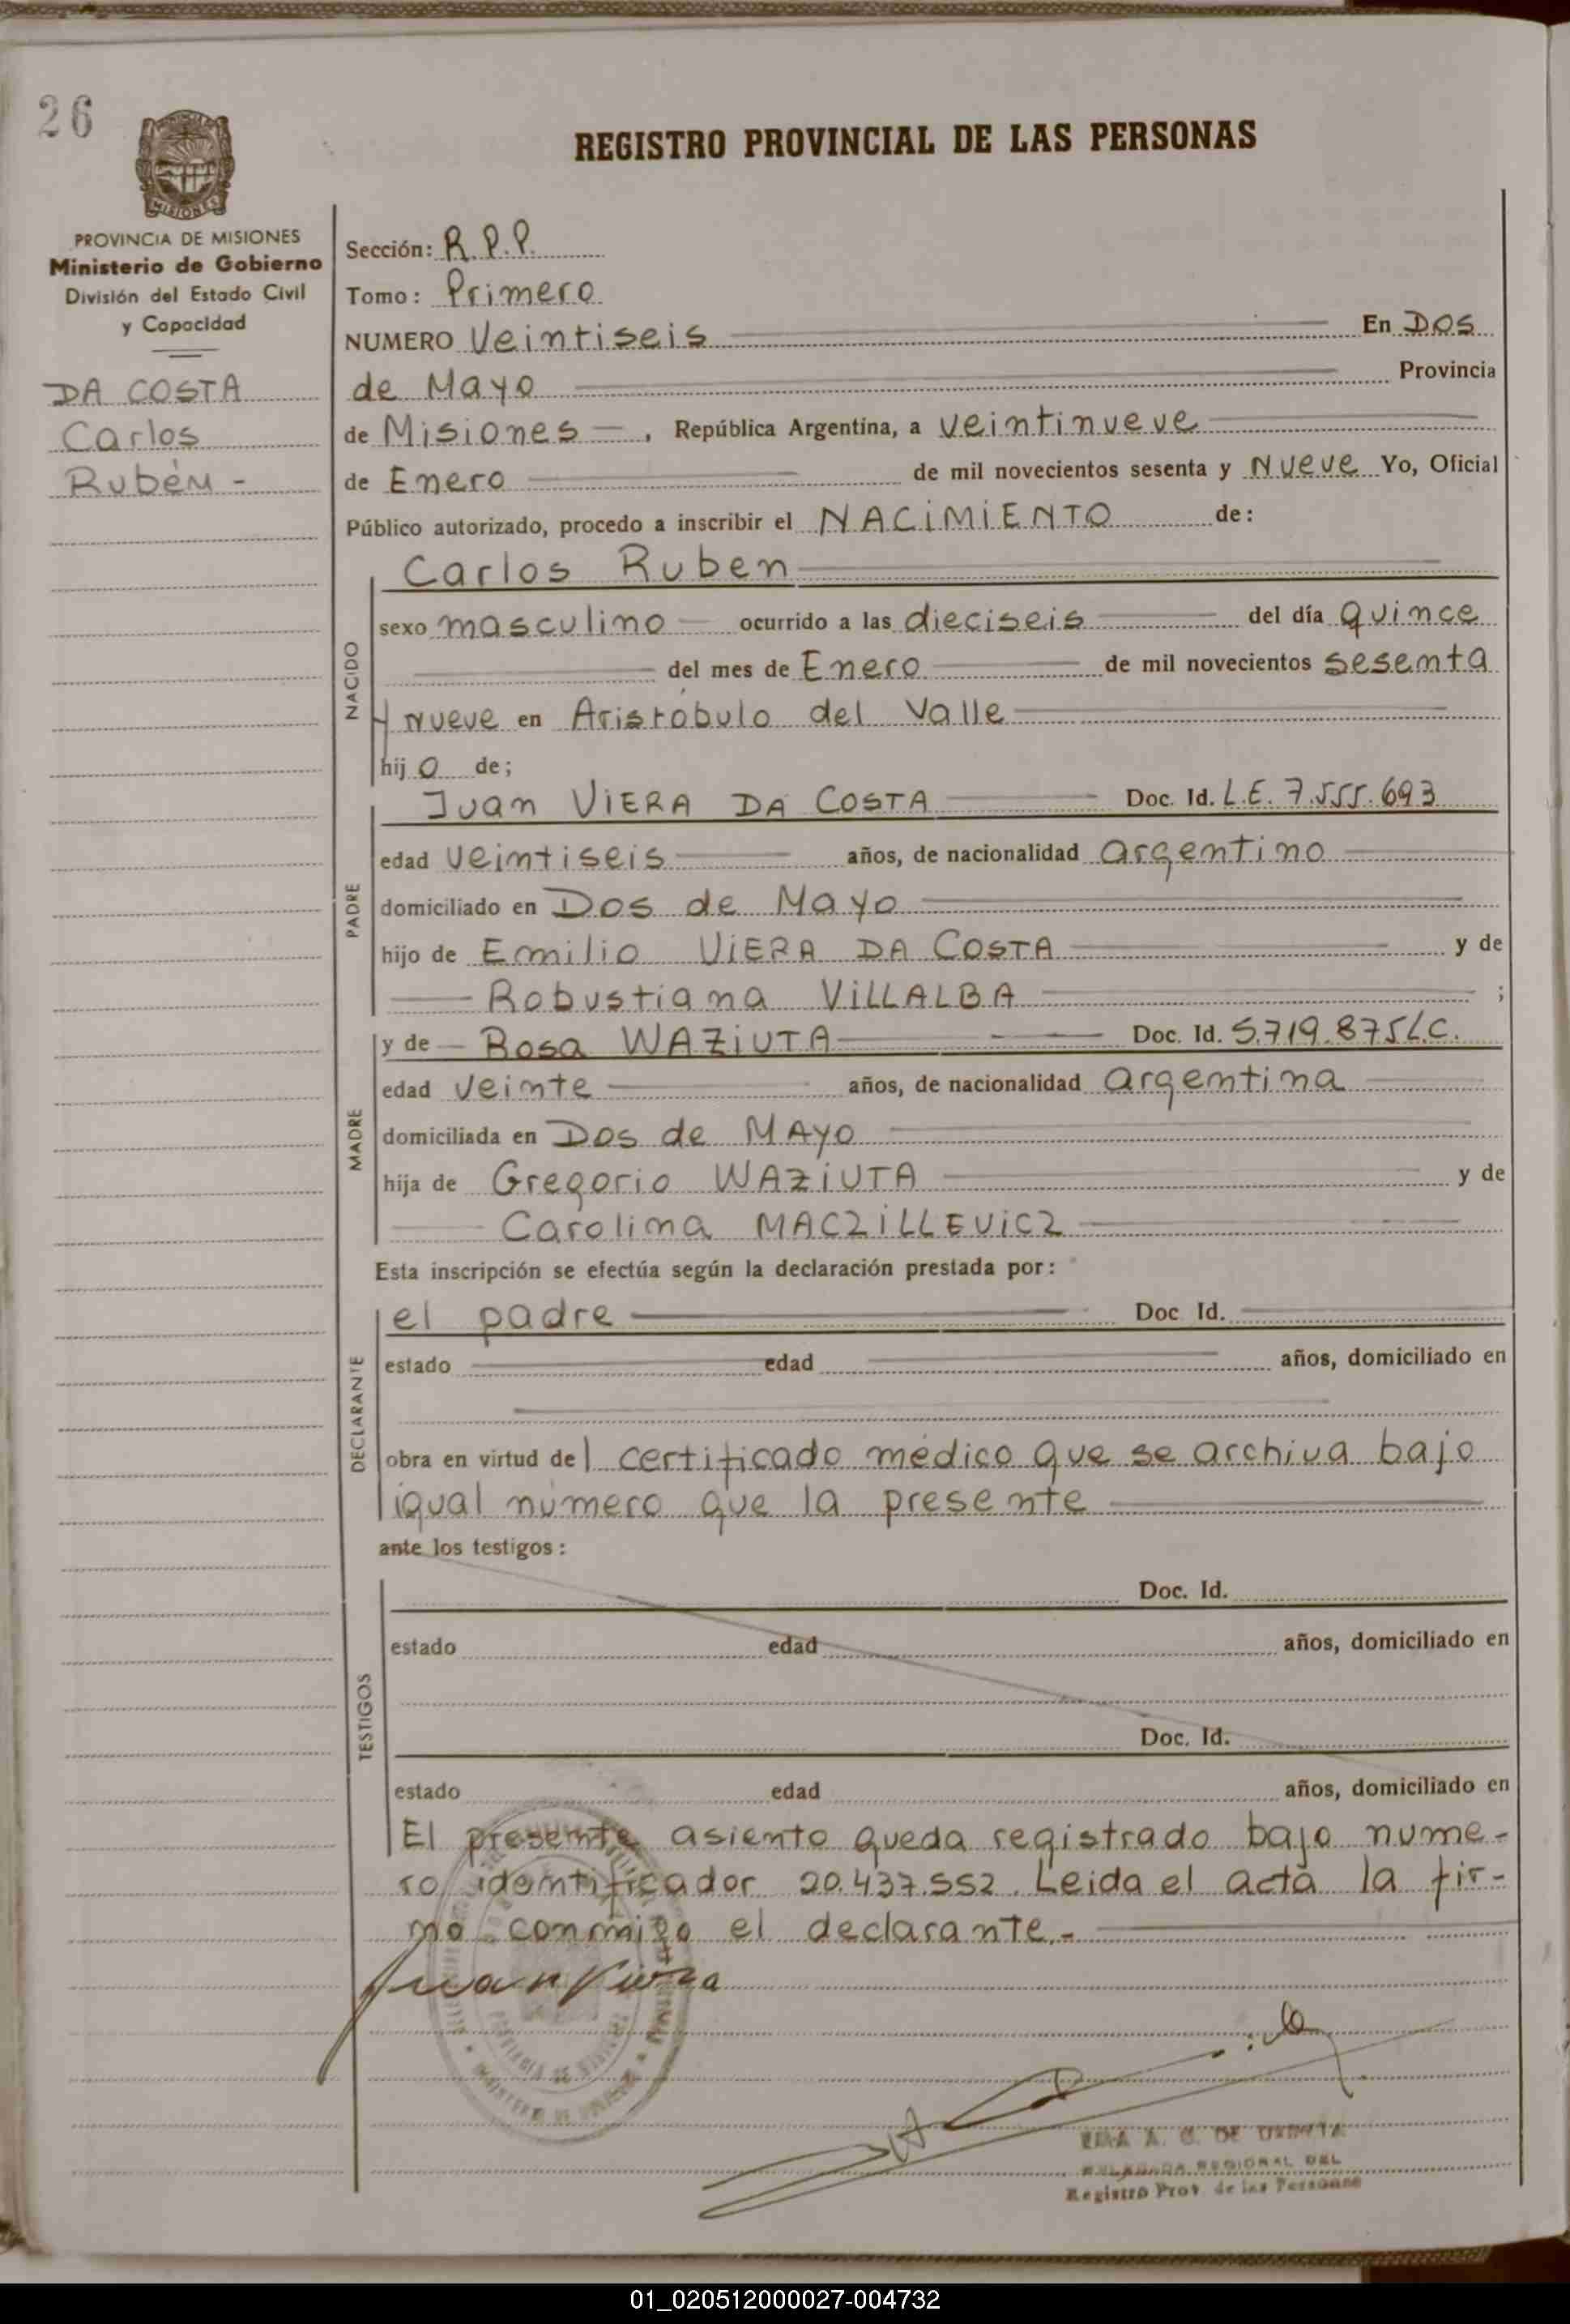 26
REGISTRO PROVINCIAL DE LAS PERSONAS
MISIONES
PROVINCIA DE MISIONES
Ministerio de Gobierno
División del Estado Civil
y Capacidad
DA COSTA
Carlos
Rubén -
Sección: R.P.P.
Tomo: Primero
NUMERO Veintiseis En Dos
de Mayo Provincia
de Misiones, República Argentina, a veintinueve
de Enero de mil novecientos sesenta y Nueve Yo, Oficial
Público autorizado, procedo a inscribir el NACIMIENTO de:
NACIDO
Carlos Ruben
sexo masculino ocurrido a las dieciseis del día quince
del mes de Enero de mil novecientos sesenta
y nueve en Aristóbulo del Valle
hijo de;
PADRE
Juan VIERA DA COSTA Doc. Id. L.E. 7.555.693
edad veintiseis años, de nacionalidad argentino
domiciliado en Dos de Mayo
hijo de Emilio VIERA DA COSTA y de
Robustiana VILLALBA ;
MADRE
y de Rosa WAZIUTA Doc. Id. 5.719.875 L.C.
edad veinte años, de nacionalidad argentina
domiciliada en Dos de MAYO
hija de Gregorio WAZIUTA y de
Carolina MACZILLEVICZ
Esta inscripción se efectúa según la declaración prestada por:
DECLARANTE
el padre Doc Id.
estado edad años, domiciliado en
obra en virtud del certificado médico que se archiva bajo
igual número que la presente
ante los testigos:
TESTIGOS
Doc. Id.
estado edad años, domiciliado en
Doc. Id.
estado edad años, domiciliado en
El presente asiento queda registrado bajo nume-
ro identificador 20.437.552. Leida el acta la fir-
ma conmigo el declarante.-
Juan Viera
REGIONAL DEL
Registro Prov. de las Personas
01_020512000027-004732